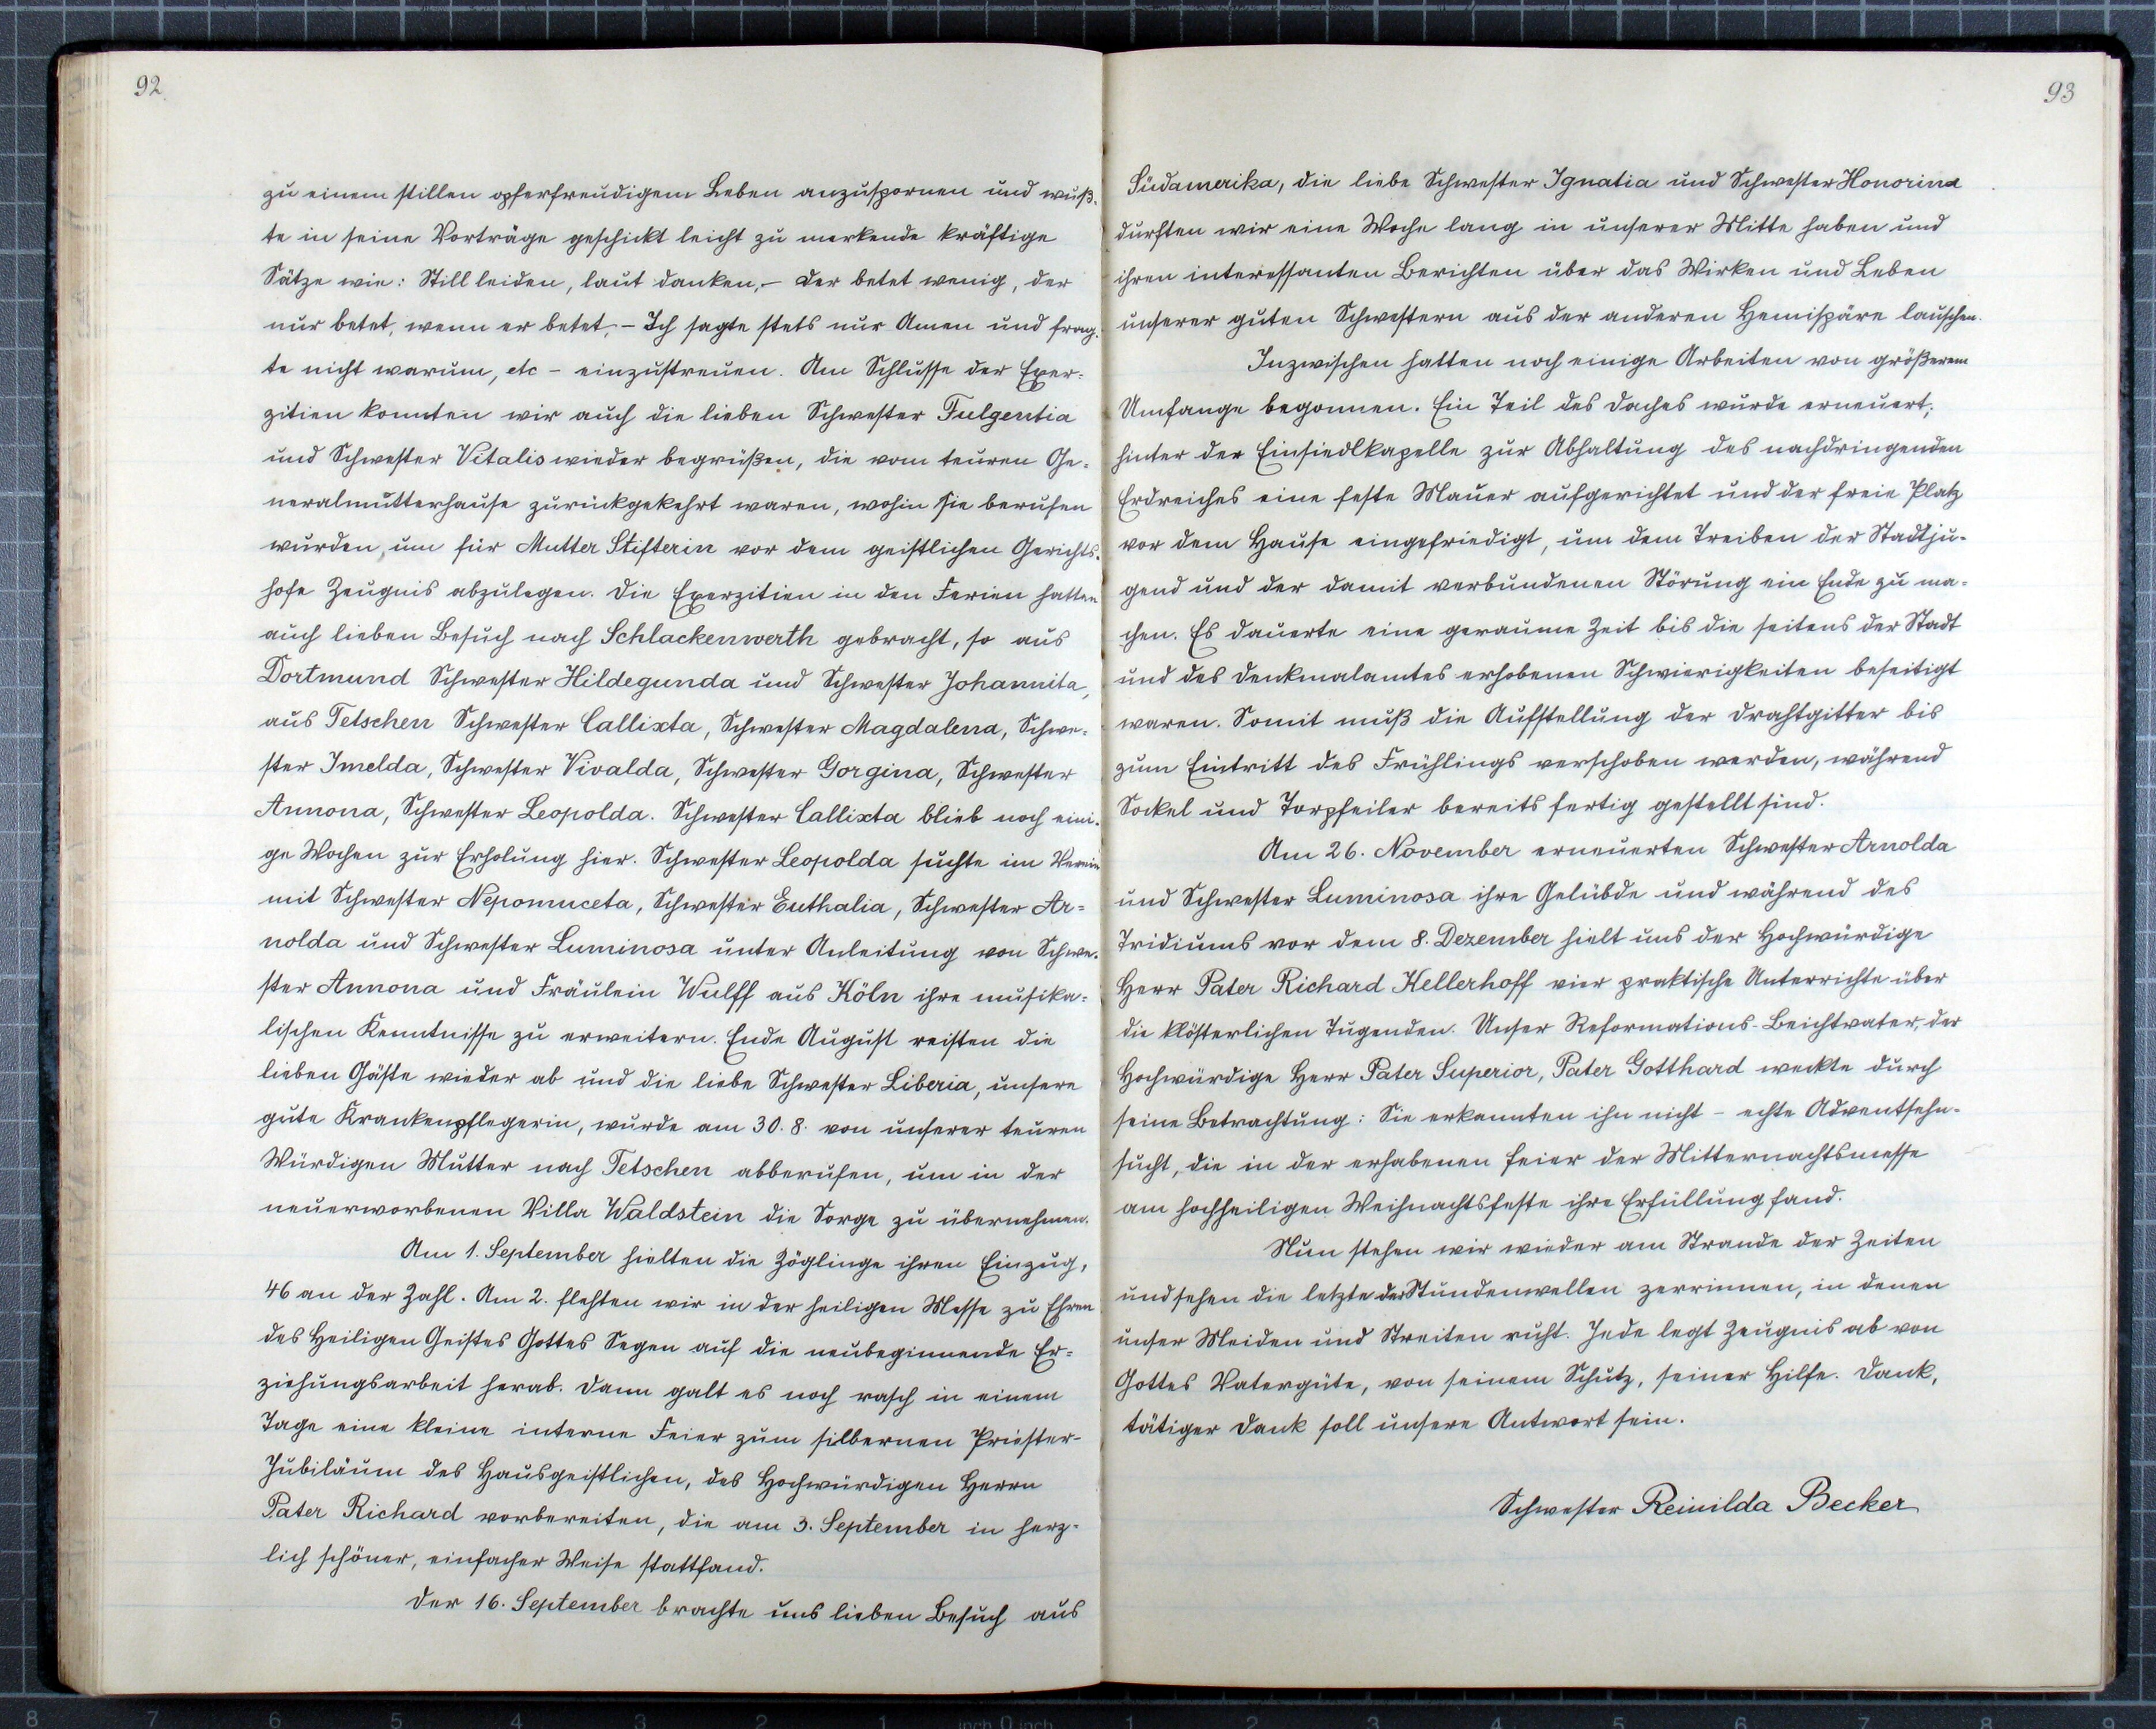 92
zu einem stillen opferfreudigem Leben anzuspornen und wuß-
te in seine Vorträge geschickt leicht zu merkende kräftige
Sätze wie: Still leiden, laut danken, – Der betet wenig, der
nur betet, wenn er betet, – Ich sagte stets nur Amen und frag-
te nicht warum, etc – einzustreuen. Am Schlusse der Exer-
zitien konnten wir auch die lieben Schwester Fulgentia
und Schwester Vitalis wieder begrüßen, die vom teuren Ge-
neralmutterhause zurückgekehrt waren, wohin sie berufen
wurden, um für Mutter Stifterin vor dem geistlichen Gerichts-
hofe Zeugnis abzulegen. Die Exerzitien in den Ferien hatten
auch lieben Besuch nach Schlackenwerth gebracht, so aus
Dortmund Schwester Hildegunda und Schwester Johannita,
aus Tetschen Schwester Callixta, Schwester Magdalena, Schwe-
ster Imelda, Schwester Vivalda, Schwester Gorgina, Schwester
Annona, Schwester Leopolda. Schwester Callixta blieb noch eini-
ge Wochen zur Erholung hier. Schwester Leopolda suchte im Verein
mit Schwester Nepomuceta, Schwester Euthalia, Schwester Ar-
nolda und Schwester Luminosa unter Anleitung von Schwe-
ster Annona und Fräulein Wulff aus Köln ihre musika-
lischen Kenntnisse zu erweitern. Ende August reisten die
lieben Gäste wieder ab und die liebe Schwester Liberia, unsere
gute Krankenpflegerin, wurde am 30. 8. von unserer teuren
Würdigen Mutter nach Tetschen abberufen, um in der
neuerworbenen Villa Waldstein die Sorge zu übernehmen.
Am 1. September hielten die Zöglinge ihren Einzug,
46 an der Zahl. Am 2. flehten wir in der heiligen Messe zu Ehren
des Heiligen Geistes Gottes Segen auf die neubeginnende Er-
ziehungsarbeit herab. Dann galt es noch rasch in einem
Tage eine kleine interne Feier zum silbernen Priester-
Jubiläum des Hausgeistlichen, des Hochwürdigen Herrn
Pater Richard vorbereiten, die am 3. September in herz-
lich schöner, einfacher Weise stattfand.
Der 16. September brachte uns lieben Besuch aus
93
Südamerika, die liebe Schwester Ignatia und Schwester Honorina
durften wir eine Woche lang in unserer Mitte haben und
ihren interessanten Berichten über das Wirken und Leben
unserer guten Schwestern aus der anderen Hemispäre lauschen.
Inzwischen hatten noch einige Arbeiten von größerem
Umfange begonnen. Ein Teil des Daches wurde erneuert,
hinter der Einsiedlkapelle zur Abhaltung des nachdringenden
Erdreiches eine feste Mauer aufgerichtet und der freie Platz
vor dem Hause eingefriedigt, um dem Treiben der Stadtju-
gend und der damit verbundenen Störung ein Ende zu ma-
chen. Es dauerte eine geraume Zeit bis die seitens der Stadt
und des Denkmalamtes erhobenen Schwierigkeiten beseitigt
waren. Somit muß die Aufstellung der Drahtgitter bis
zum Eintritt des Frühlings verschoben werden, während
Sockel und Torpfeiler bereits fertig gestellt sind.
Am 26. November erneuerten Schwester Arnolda
und Schwester Luminosa ihre Gelübde und während des
Tridiums vor dem 8. Dezember hielt uns der Hochwürdige
Herr Pater Richard Kellerhoff vier praktische Unterrichte über
die klösterlichen Tugenden. Unser Reformations-Beichtvater, der
Hochwürdige Herr Pater Superior, Pater Gotthard weckte durch
seine Betrachtung: Sie erkannten ihn nicht – echte Adventsehn-
sucht, die in der erhabenen Feier der Mitternachtsmesse
am hochheiligen Weihnachtsfeste ihre Erfüllung fand.
Nun stehen wir wieder am Strande der Zeiten
und sehen die letzte der Stundenwellen zerrinnen, in denen
unser Meiden und Streiten ruht. Jede legt Zeugnis ab von
Gottes Vatergüte, von seinem Schutz, seiner Hilfe. Dank,
tätiger Dank soll unsere Antwort sein.
Schwester Reinilda Becker
8 7 6 5 4 3 2 1 inch 0 inch 1 2 3 4 5 6 7 8 9